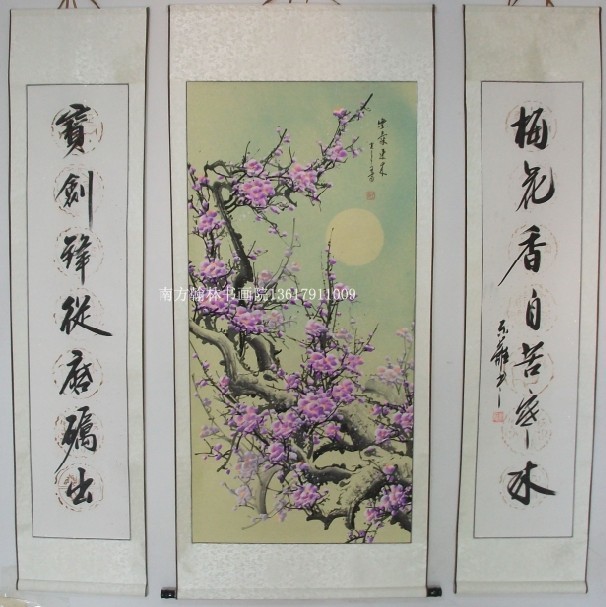 寶劍鋒從磨礪出
紫氣東來
南方翰林书画院13617911009
梅花香自苦寒来